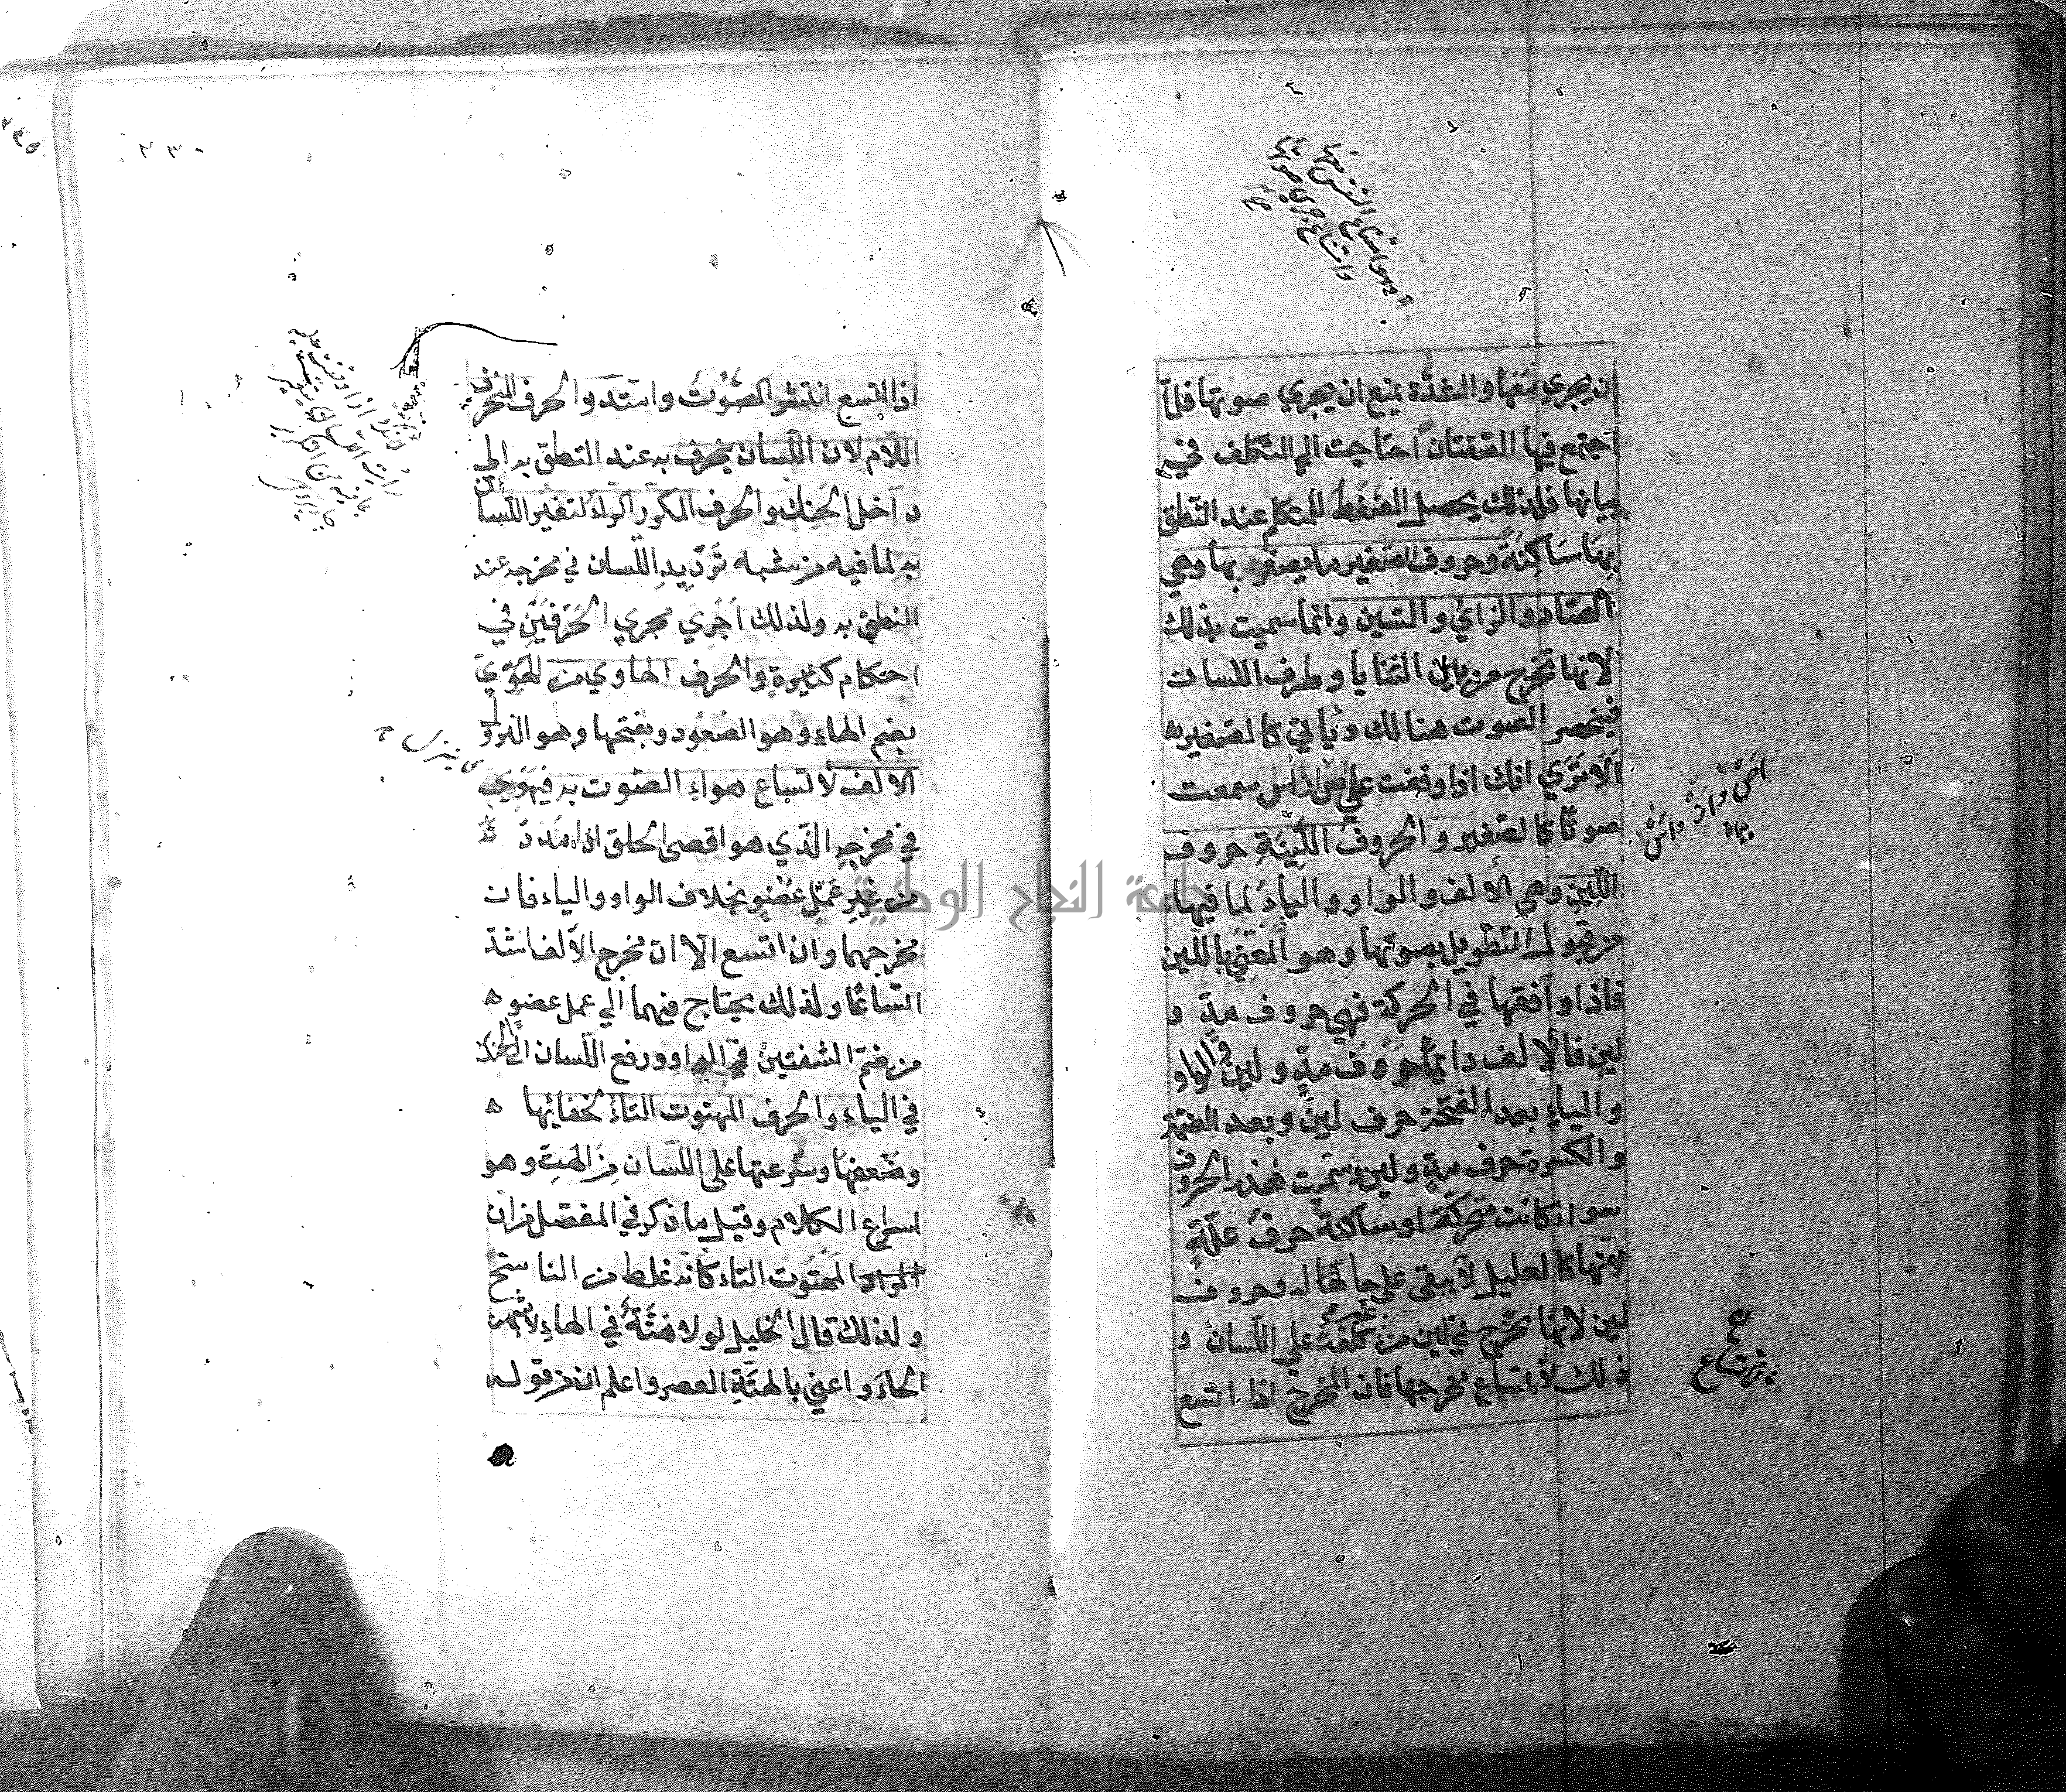 ان يجري معها والشدة يمنع ان يجري صوتها فلما
اجتمع فيها الصفتان احتاجت الي التكلف في
بيانها فلذلك يحصل الضغط للمتكلم عند النطق
بها ساكنة وحروف الصفير ما يصفر بها وهي
الصاد والزاي والسين وانما سميت بذلك
لانها تخرج من بين الثنايا وطرف اللسان
فينحصر الصوت هنالك ويأتي كالصفير
الا تري انك اذا وقفت علي اص از اس سمعت
صوتا كالصفير والحروف اللينة حروف
اللين وهي الالف والواو والياء لما فيها
من قبول التطويل بصوتها وهو المعني باللين
فاذا وافقها في الحركة فهي حروف مد و
لين فالالف دايما حروف مد ولين والواو
والياء بعد الفتحة حرف لين وبعد الضمة
والكسرة حرف مد ولين وسميت هذه الحروف
سواء كانت متحركة او ساكنة حرف علة
لانها كالعليل لا يبقي علي حالها له وحروف
لين لانها تخرج في لين من غير كلفة علي اللسان و
ذلك لاتساع مخرجها فان المخرج اذا اتسع
٢٣٠
اذا اتسع انتشر الصوت وامتد والحرف المنحرف
اللام لان اللسان ينحرف به عند النطق به الي
داخل الحنك والحرف المكرر الراء لتعثر اللسان
به لما فيه من شبه ترديد اللسان في مخرجه عند
النطق به ولذلك اجري مجري الحرفين في
احكام كثيرة والحرف الهاوي من الهوي
بضم الهاء وهو الصعود وبفتحها وهو النزول
الالف لاتساع هواء الصوت به فيهوي
في مخرجه الذي هو اقصي الحلق اذا مددته
من غير عمل عضو بخلاف الواو والياء فان
مخرجهما وان اتسع الا ان مخرج الالف اشد
اتساعا ولذلك يحتاج فيهما الي عمل عضو
من ضم الشفتين في الواو ورفع اللسان الي الحنك
في الياء والحرف المهتوت التاء لخفائها
وضعفها وسرعتها علي اللسان من الهت وهو
اسراع الكلام وقيل ما ذكر في المفصل من ان
المراد المهتوت التاء كانه غلط من الناسخ
ولذلك قال الخليل لولا هتة في الهاء لاشبهت
الحاء واعني بالهتة العصر واعلم ان من قوله